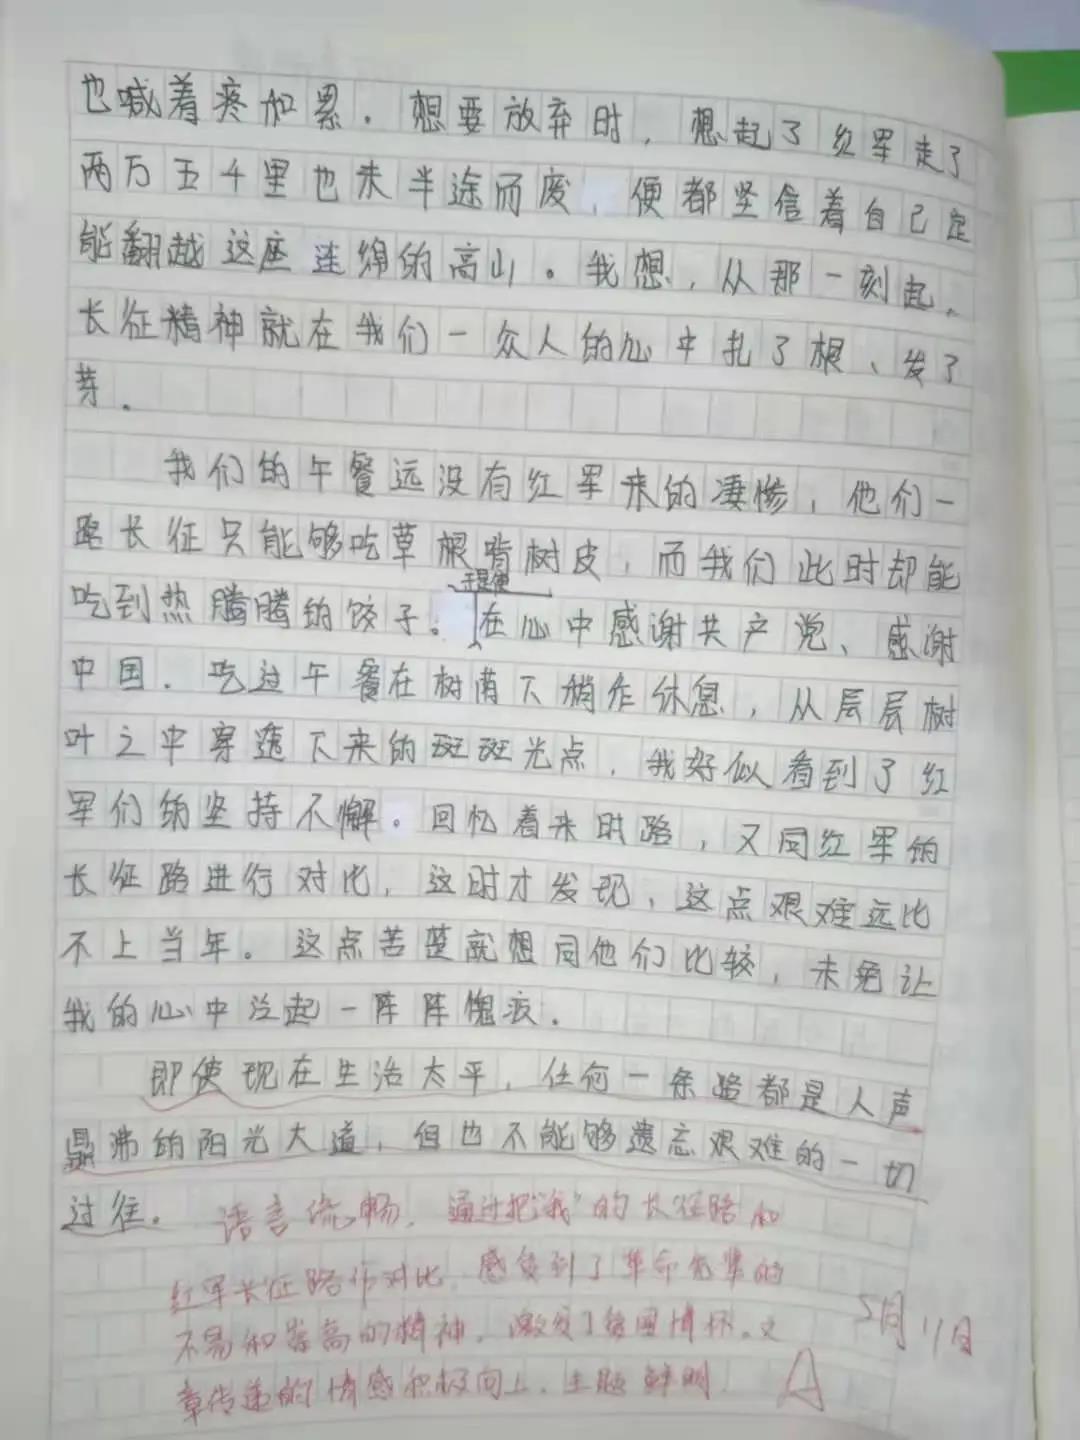 也喊着疼和累。想要放弃时，想起了红军走了
两万五千里也未半途而废，便都坚信着自己定
能翻越这座连绵的高山。我想，从那一刻起，
长征精神就在我们一众人的心中扎了根、发了
芽。
我们的午餐远没有红军来的凄惨，他们一
路长征只能够吃草根啃树皮，而我们此时却能
于是便
吃到热腾腾的饺子。在心中感谢共产党、感谢
中国。吃过午餐在树荫下稍作休息，从层层树
叶之中穿透下来的斑斑光点，我好似看到了红
军们的坚持不懈。回忆着来时路，又同红军的
长征路进行对比，这时才发现，这点艰难远比
不上当年。这点苦楚就想同他们比较，未免让
我的心中泛起一阵阵愧疚。
即使现在生活太平，任何一条路都是人声
鼎沸的阳光大道，但也不能够遗忘艰难的一切
过往。
语言流畅，通过把“我”的长征路和
红军长征路作对比，感受到了革命先辈的
不易和崇高的精神，激发了爱国情怀。文
章传递的情感积极向上，主题鲜明。
A
5月11日